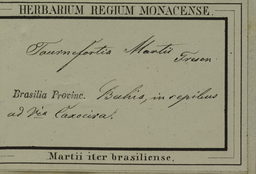 HERBARIUM REGIUM MONACENSE.
Tournefortia Martii
Fresen
Brasilia Provinc. Bahia, in sepibus
ad Caxoeira.
Martii iter brasiliense.